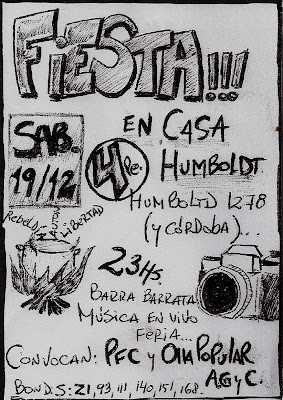 FiESTA!!!
SAB.
19/12
EN CASA
4Le.
HUMBOLDT
HUMBOLTD 1278
(y CÓRDOBA)...
REBELDÍA
LIBERTAD
23HS.
BARRA BARRATA
MÚSICA EN VIVO
FERIA...
CONVOCAN: PFC y Olla POPULAR
AG y C.
BONDIS: 21, 93, 111, 140, 151, 168.